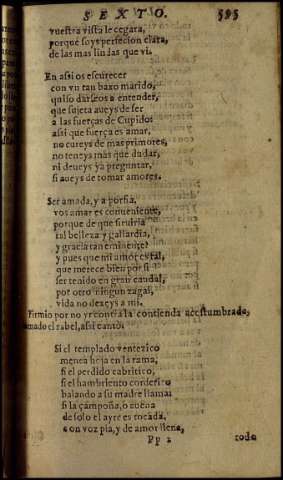 SEXTO. 595
vuestra vista le cegara,
porque soys perfecion clara,
de las mas lindas que vi.
En assi os escurecer
con vn tan baxo marido,
quiso darseos a entender,
que sujeta aueys de ser
a las fuerças de Cupido:
assi que fuerça es amar,
no cureys de mas primores,
no teneys mas que dudar,
ni deueys ya preguntar,
si aueys de tomar amores.
Ser amada, y a porfia,
vos amar es conueniente,
porque de que siruiria
tal belleza y gallardia,
y gracia tan eminente?
y pues que mi amor es tal,
que merece bien por si
ser tenido en gran caudal,
por otro ningun zagal,
vida no dexeys a mi.
Firmio por no yr contra la contienda acostumbrada,
tomado el rabel, assi canto.
Si el templado ventezico
menea hoja en la rama,
si el perdido cabritico,
si el hambriento corderito
balando a su madre llama:
si la çampoña, o auena
de solo el ayre es tocada,
con voz pia, y de amor llena,
Pp 2 todo